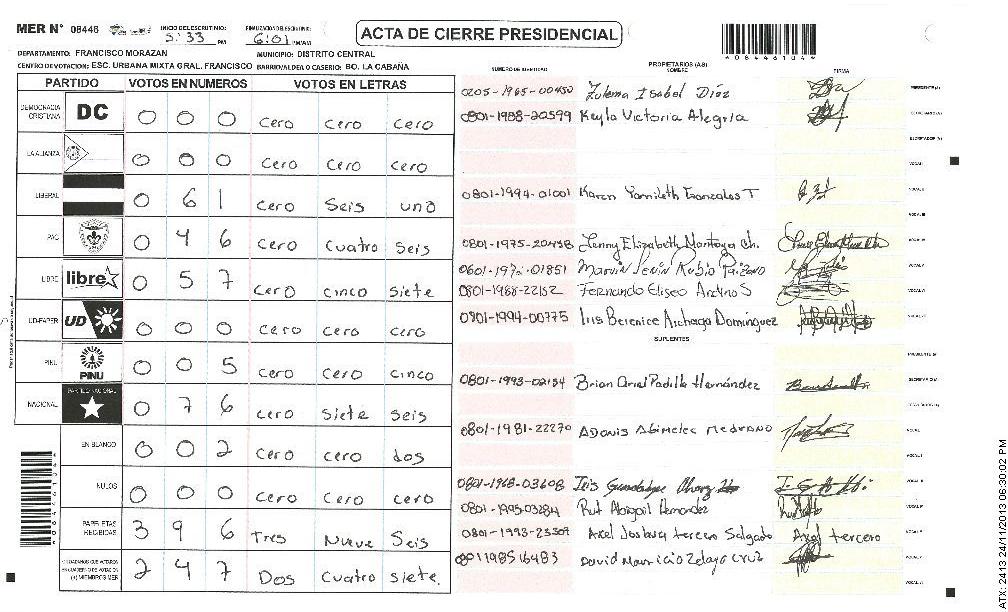 MER N° 08446 INICIO DEL ESCRUTINIO: 5:33 PM FINALIZACION DEL ESCRUTINIO: 6:01 PM/AM ACTA DE CIERRE PRESIDENCIAL
DEPARTAMENTO: FRANCISCO MORAZAN MUNICIPIO: DISTRITO CENTRAL
CENTRO DE VOTACION: ESC. URBANA MIXTA GRAL. FRANCISCO BARRIO/ALDEA O CASERIO: BO. LA CABAÑA
PARTIDO VOTOS EN NUMEROS VOTOS EN LETRAS
DEMOCRACIA CRISTIANA DC 0 0 0 cero cero cero
LA ALIANZA 0 0 0 cero cero cero
LIBERAL 0 6 1 cero Seis uno
PAC 0 4 6 cero cuatro seis
LIBRE libre 0 5 7 cero cinco siete
UD-FAPER UD 0 0 0 cero cero cero
PINU PINU 0 0 5 cero cero cinco
NACIONAL PARTIDO NACIONAL 0 7 6 cero siete seis
EN BLANCO 0 0 2 cero cero dos
NULOS 0 0 0 cero cero cero
PAPELETAS RECIBIDAS 3 9 6 Tres Nueve Seis
CIUDADANOS QUE VOTARON EN CUADERNO DE VOTACION (+) MIEMBROS MER 2 4 7 Dos Cuatro siete
NUMERO DE IDENTIDAD PROPIETARIOS (AS) NOMBRE FIRMA
0205-1965-00450 Zulema Isabel Díaz PRESIDENTE (A)
0801-1988-20599 Keyla Victoria Alegria SECRETARIO (A)
ESCRUTADOR (A)
VOCAL I
0801-1994-01001 Karen Yamileth Gonzales T VOCAL II
VOCAL III
0801-1975-20458 Jenny Elizabeth Montoya Ch. VOCAL IV
0601-1972-01851 Marvin Rubio VOCAL V
0801-1968-22152 Fernando Eliseo Andino S VOCAL VI
0801-1994-00775 Iris Berenice Archaga Domínguez VOCAL VII
SUPLENTES
PRESIDENTE (A)
0801-1993-02154 Brian Ariel Padilla Hernández SECRETARIO (A)
ESCRUTADOR (A)
0801-1981-22270 Adonis Abimelec Medrano VOCAL I
VOCAL II
0801-1968-03608 Iris Guadalupe VOCAL III
0801-1995-03284 Rut Abigail Hernandez
0801-1993-23309 Axel Jostary tercero Salgado Axel tercero
0011985 16483 David Mauricio Zelaya Cruz
ATX: 2413 24/11/2013 06:30:02 PM